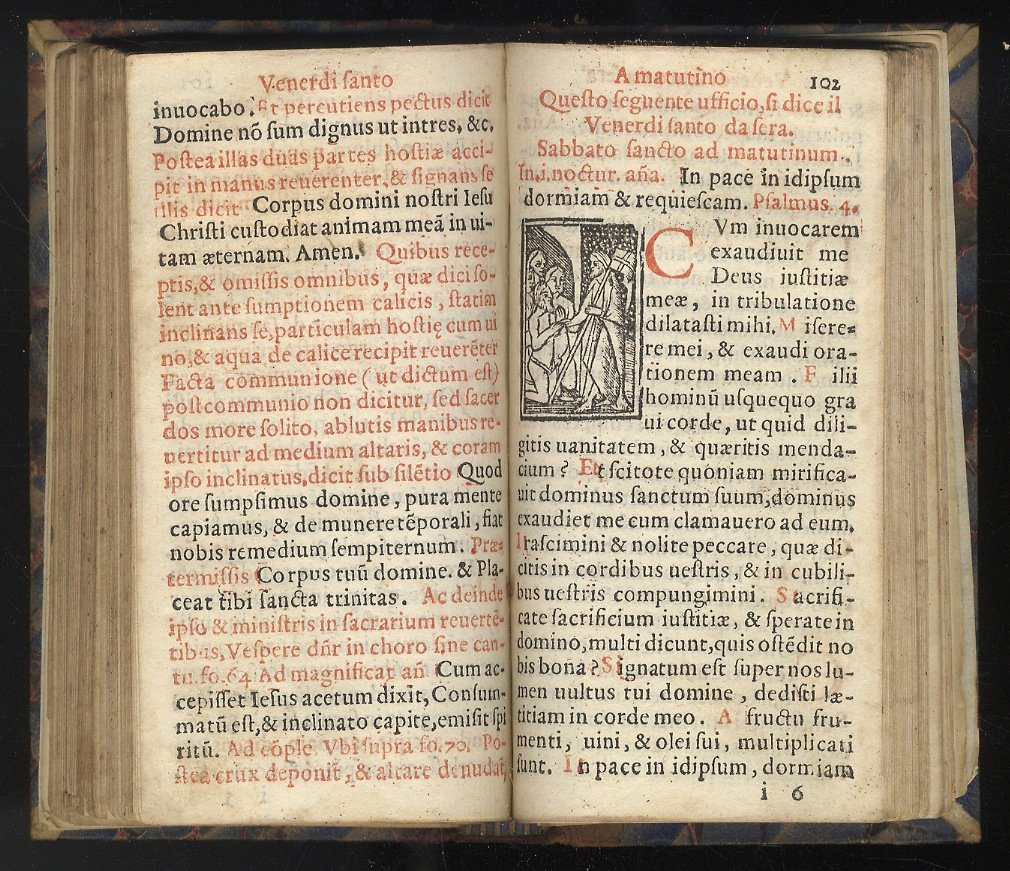 Venerdi ſanto
inuocabo. Et percutiens pectus dicit
Domine nõ ſum dignus ut intres, &c.
Poſtea illas duas partes hoſtiæ acci-
pit in manus reuerenter, & ſignans ſe
illis dicit Corpus domini noſtri Ieſu
Chriſti cuſtodiat animam meã in ui-
tam æternam. Amen. Quibus rece-
ptis, & omiſſis omnibus, quæ dici ſo-
lent ante ſumptionem calicis, ſtatim
inclinans ſe, particulam hoſtię cum ui
no, & aqua de calice recipit reuerẽter
Facta communione ( ut dictum eſt)
poſtcommunio non dicitur, ſed ſacer
dos more ſolito, ablutis manibus re-
uertitur ad medium altaris, & coram
ipſo inclinatus, dicit ſub ſilẽtio Quod
ore ſumpſimus domine, pura mente
capiamus, & de munere tẽporali, fiat
nobis remedium ſempiternum. Præ-
termiſſis Corpus tuũ domine. & Pla-
ceat tibi ſancta trinitas. Ac deinde
ipſo & miniſtris in ſacrarium reuertẽ-
tibus, Veſpere dñr in choro ſine can-
tu. fo. 64. Ad magnificat añ Cum ac-
cepiſſet Ieſus acetum dixit, Conſum-
matũ eſt, & inclinato capite, emiſit ſpi
ritũ. Ad cõple. Vbi ſupra fo. 70. Po-
ſtea crux deponit̃, & altare denudat̃,
A matutino 102
Queſto ſeguente ufficio, ſi dice il
Venerdi ſanto da ſera.
Sabbato ſancto ad matutinum.
In. i. noctur. aña. In pace in idipſum
dormiam & requieſcam. Pſalmus. 4.
CVm inuocarem
exaudiuit me
Deus iuſtitiæ
meæ, in tribulatione
dilataſti mihi. M iſere-
re mei, & exaudi ora-
tionem meam. F ilii
hominũ uſquequo gra
ui corde, ut quid dili-
gitis uanitatem, & quæritis menda-
cium? Et ſcitote quoniam mirifica-
uit dominus ſanctum ſuum, dominus
exaudiet me cum clamauero ad eum.
Iraſcimini & nolite peccare, quæ di-
citis in cordibus ueſtris, & in cubili-
bus ueſtris compungimini. S acrifi-
cate ſacrificium iuſtitiæ, & ſperate in
domino, multi dicunt, quis oſtẽdit no
bis bona? Signatum eſt ſuper nos lu-
men uultus tui domine, dediſti læ-
titiam in corde meo. A fructu fru-
menti, uini, & olei ſui, multiplicati
ſunt. In pace in idipſum, dormiam
i 6